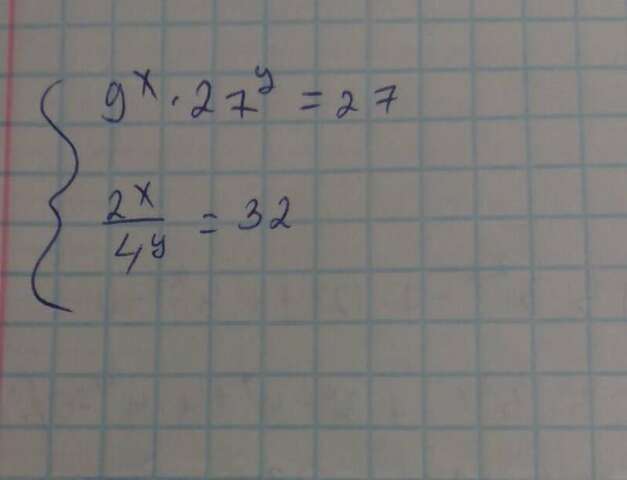 9^x · 27^y = 27
2^x / 4^y = 32